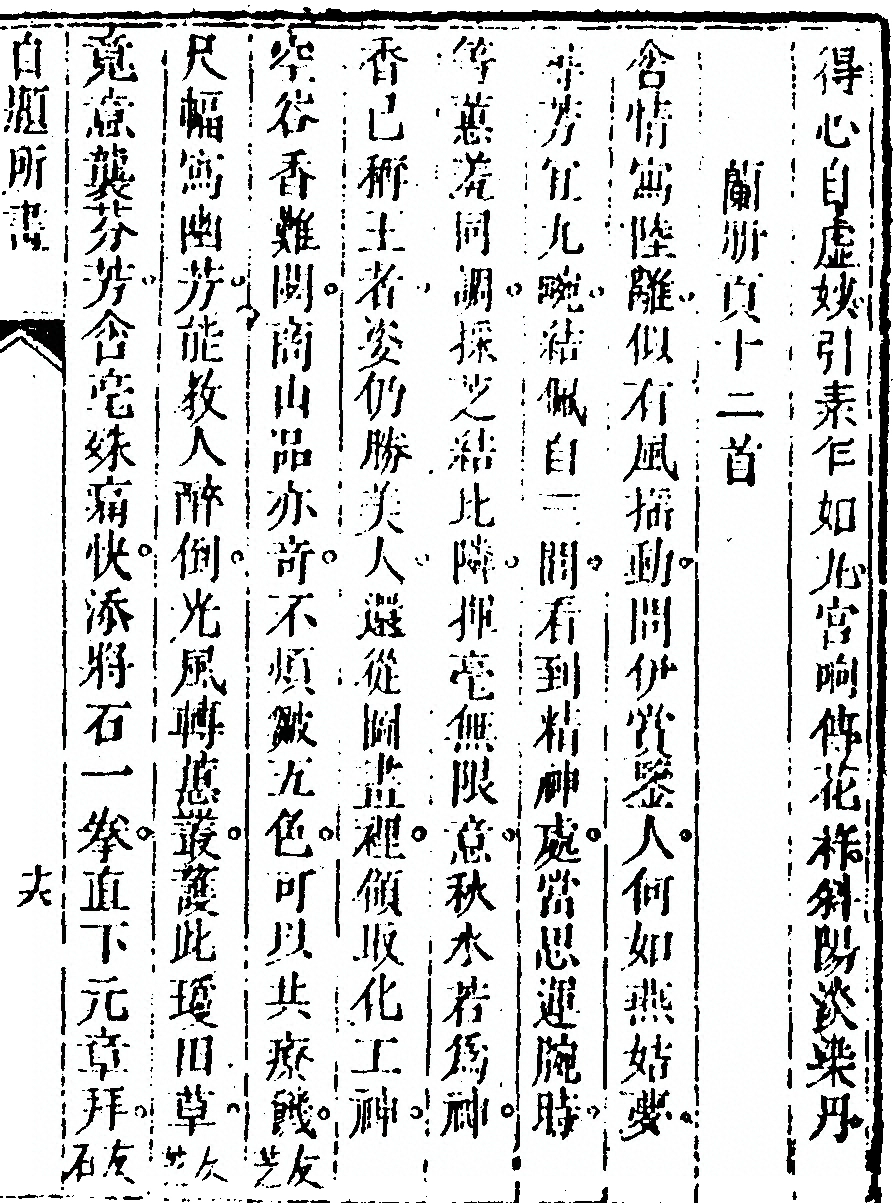 得心自虛妙引素乍如九宮晌傳花柞斜陽淡染丹
蘭册頁十二首
含情寫陸離似有風搖動問伊當鑒人何如燕姞夢
芳宜九畹結佩自三閭看到精神處當思運腕時
等蕙茺同調採芝結比隣揮毫無限意秋水若爲神
香已稱王者姿仍勝美人選從圖畫裡傾取化工神
空谷香難閟商山品亦奇不煩皴五色可以共療饑芝友
尺幅寫幽芳能教人醉倒光風轉蕙叢護此瓊田草芝友
竟意襲芬芳含毫殊痛快添將石一拳直下元章拜石友
自題所畫
六